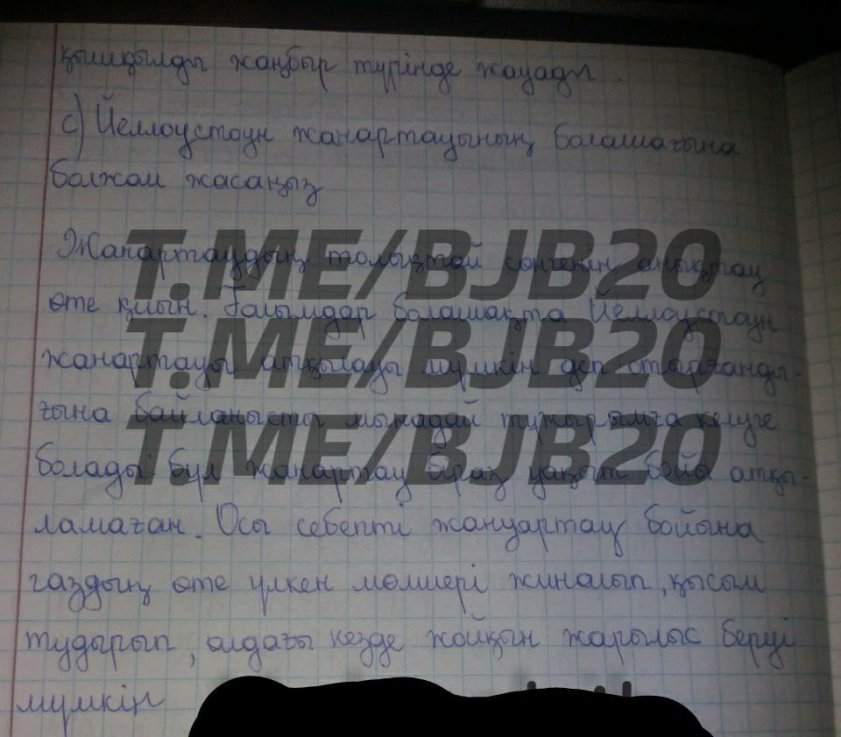 қышқылды жаңбыр түрінде жауады.
с) Йеллоустоун жанартауының болашағына
болжам жасаңыз
Жанартаудың толықтай сөнгенін анықтау
T.ME/BJB20
өте қиын. Ғалымдар болашақта Йеллоустоун
T.ME/BJB20
жанартауы атқылауы мүмкін деп отырғанды-
ғына байланысты мынадай тұжырымға келуге
T.ME/BJB20
болады бұл жанартау біраз уақыт бойы атқы-
ламаған. Осы себепті жануартау бойына
газдың өте үлкен мөлшері жиналып, қысым
тудырып, алдағы кезде жойқын жарылыс беруі
мүмкін